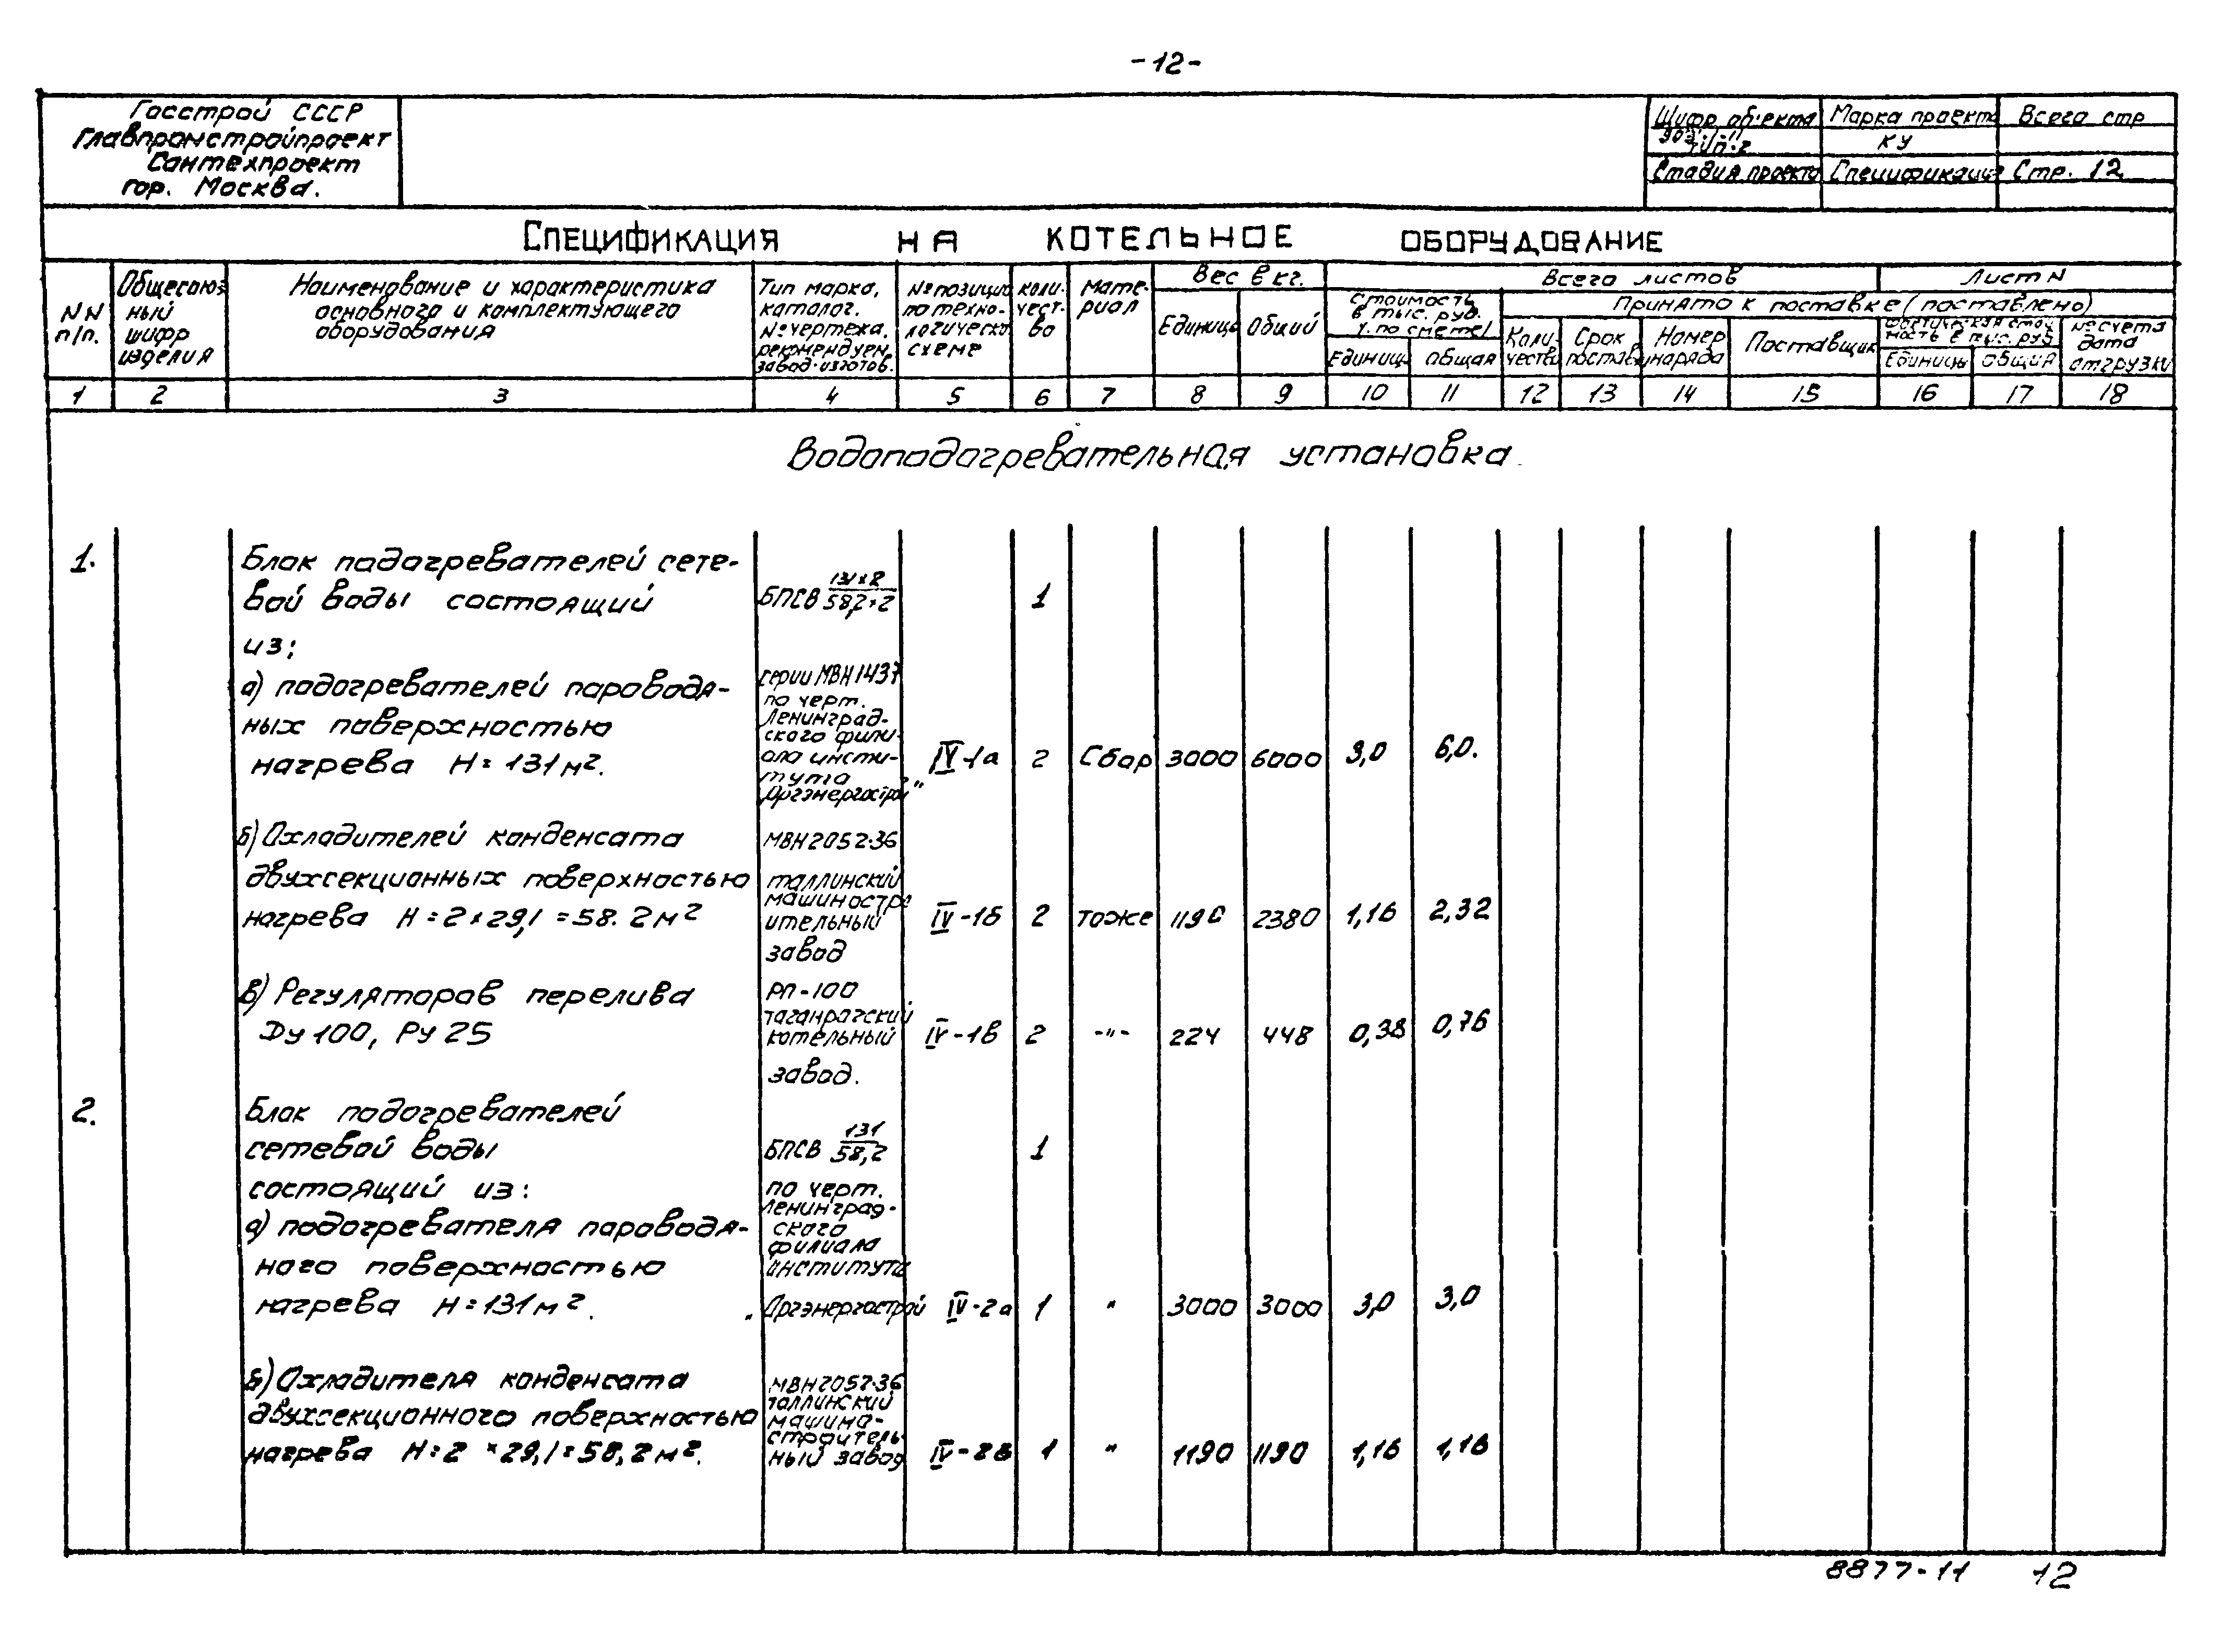 -12-
Госстрой СССР
Главпромстройпроект
Сантехпроект
гор. Москва.
Шифр объекта
Марка проекта
Всего стр
КУ
Стадия проекта
Спецификация
Стр. 12
Спецификация на котельное оборудование
NN п/п.
Общесоюз-
ный
шифр
изделия
Наименование и характеристика
основного и комплектующего
оборудования
Тип марка,
каталог.
№ чертежа,
рекомендуем.
завод-изготов.
№ позиции
по техно-
логической
схеме
Коли-
чест-
во
Мате-
риал
Вес в кг.
Единицы
Общий
Всего листов
Лист N
Стоимость
в тыс. руб.
/по смете/
Единицы
общая
Принято к поставке (поставлено)
Коли-
чество
Срок
поставки
Номер
наряда
Поставщик
Фактическая стои-
мость в тыс. руб
Единицы
общая
№ счета
дата
отгрузки
1 2 3 4 5 6 7 8 9 10 11 12 13 14 15 16 17 18
Водоподогревательная установка.
1.
Блок подогревателей сете-
вой воды состоящий
из:
БПСВ 131×2/58,2×2
1
а) подогревателей пароводя-
ных поверхностью
нагрева H=131м².
серии МВН1437
по черт.
Ленинград-
ского фили-
ала инсти-
тута
„Оргэнергострой"
IV-1а 2 Сбор 3000 6000 3,0 6,0.
б) Охладителей конденсата
двухсекционных поверхностью
нагрева H=2×29,1=58.2м²
МВН2052-36
таллинский
машиностро
ительный
завод
IV-1б 2 тоже 1190 2380 1,16 2,32
в) Регуляторов перелива
Ду 100, Ру 25
РП-100
таганрогский
котельный
завод.
IV-1в 2 -"- 224 448 0,38 0,76
2.
Блок подогревателей
сетевой воды
состоящий из:
БПСВ 131/58,2
1
а) подогревателя пароводя-
ного поверхностью
нагрева H=131м².
по черт.
Ленинград-
ского
филиала
института
„Оргэнергострой
IV-2а 1 " 3000 3000 3,0 3,0
б) Охладителя конденсата
двухсекционного поверхностью
нагрева H=2×29,1=58,2м².
МВН2052-36
таллинский
машино-
строитель-
ный завод
IV-2в 1 " 1190 1190 1,16 1,16
8877-11 12